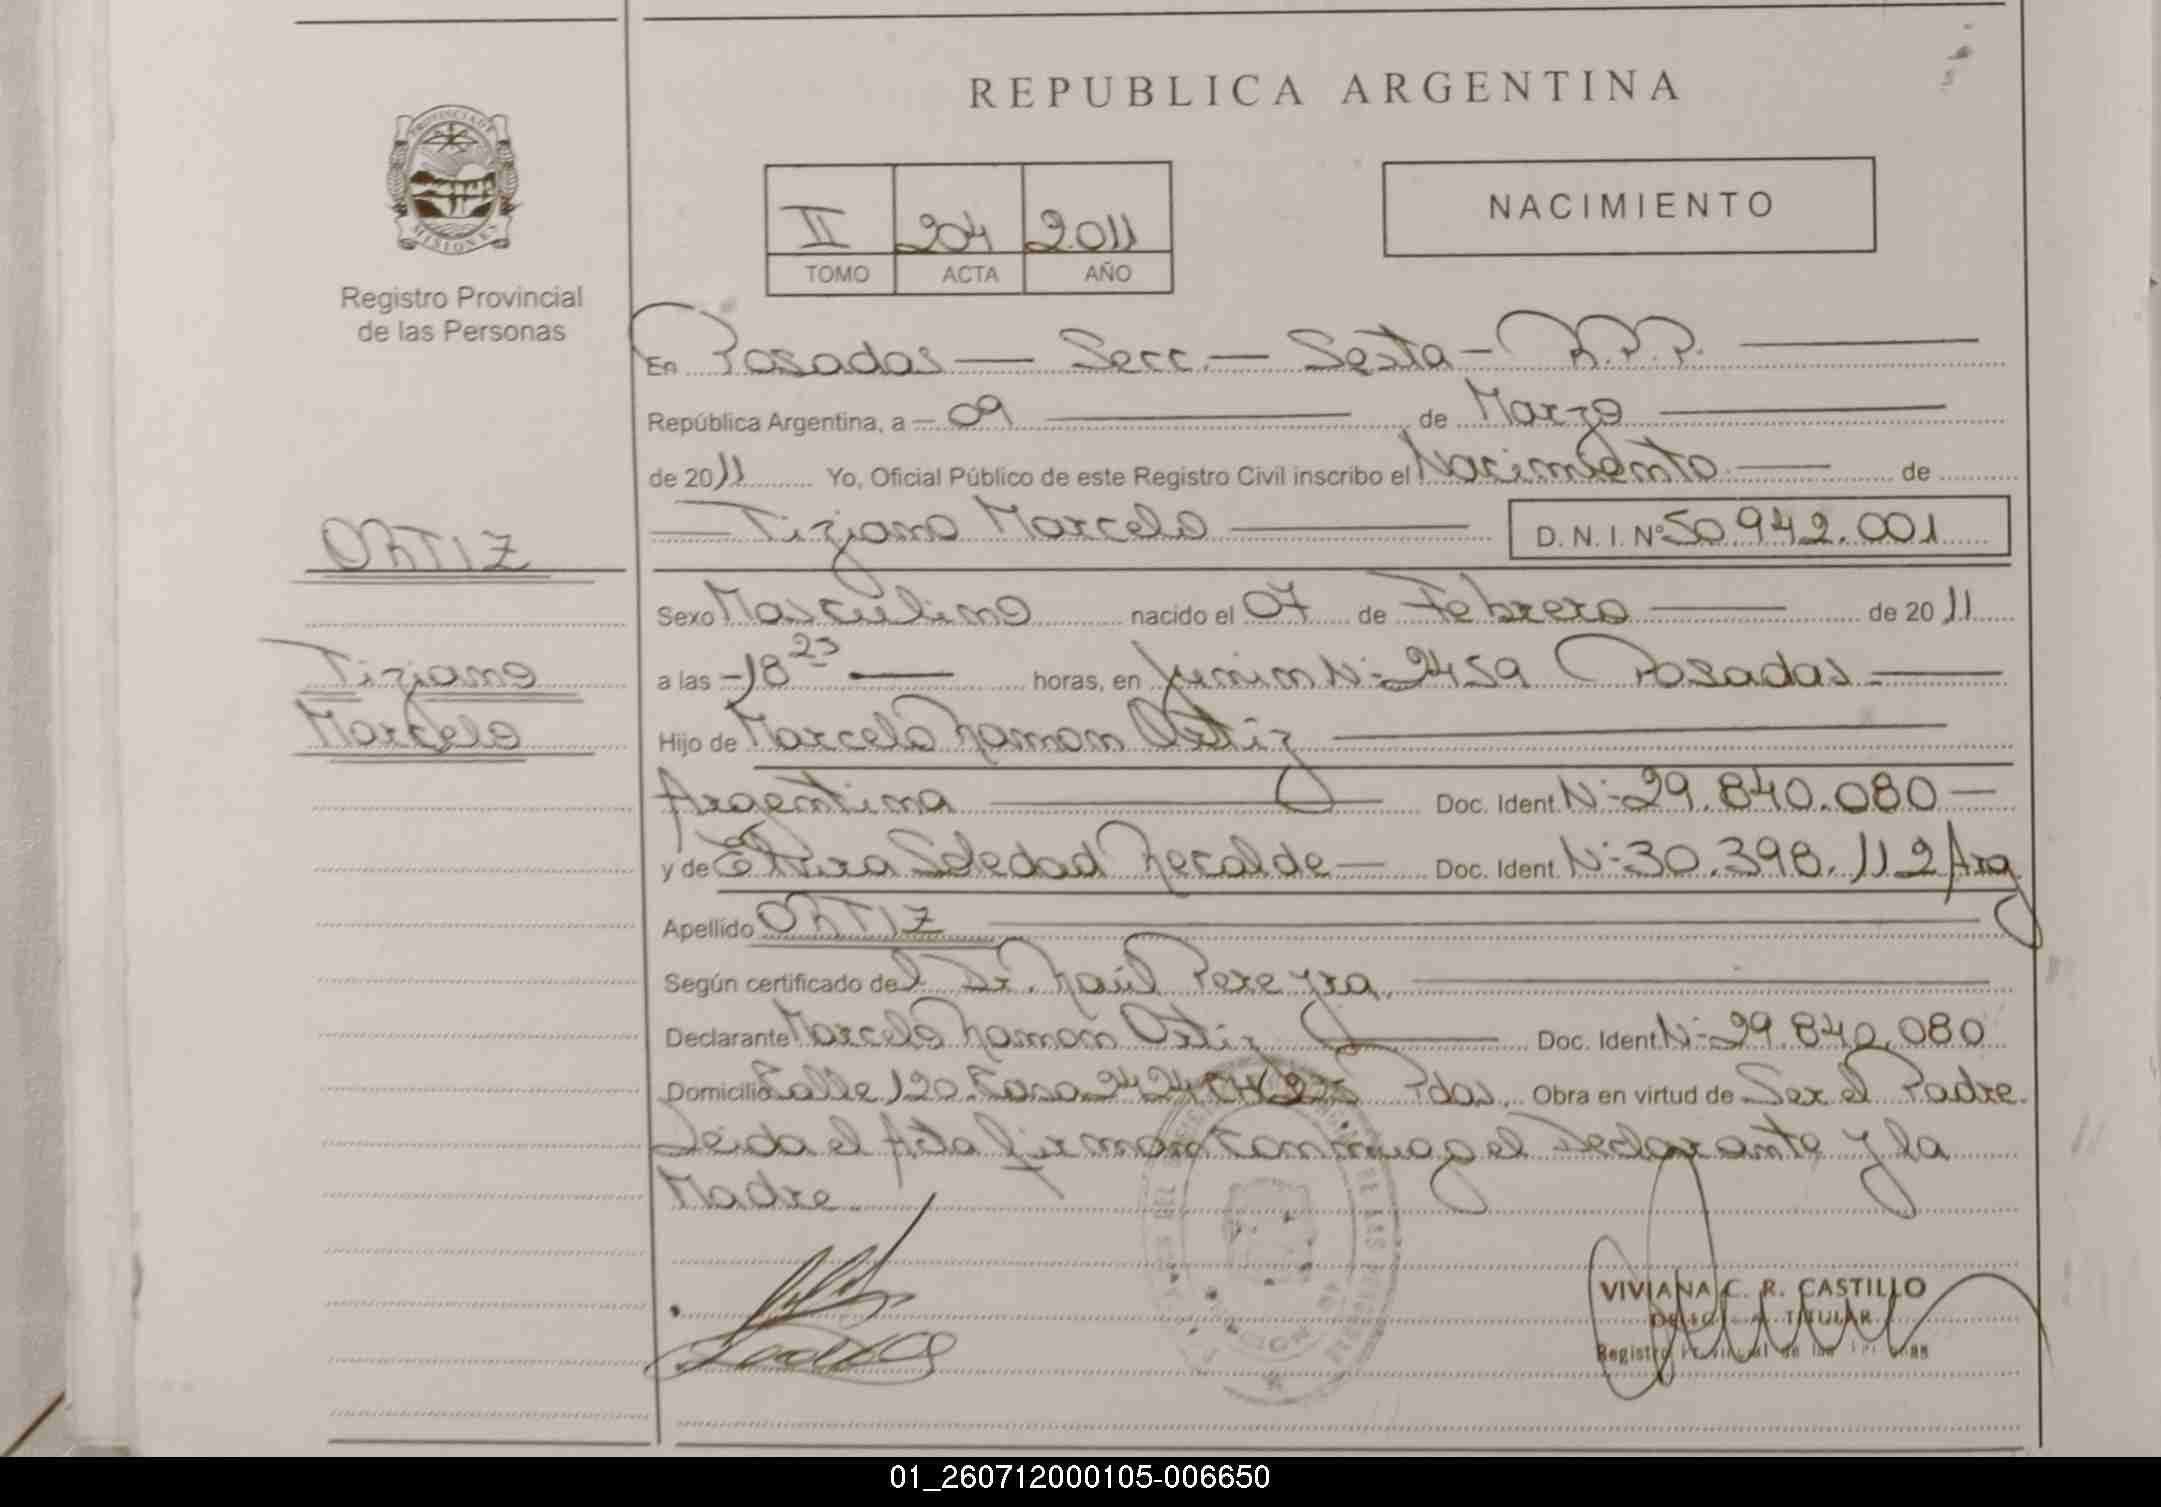 REPUBLICA ARGENTINA
PROVINCIA DE
MISIONES
Registro Provincial
de las Personas
II 204 2011
TOMO ACTA AÑO
NACIMIENTO
En Posadas — Secc. — Sexta - R.P.P.
República Argentina, a - 09 de Marzo
de 2011 Yo, Oficial Público de este Registro Civil inscribo el Nacimiento de
Tiziano Marcelo D.N.I. Nº 50.942.001
ORTIZ
Tiziano
Marcelo
Sexo Masculino nacido el 07 de Febrero de 2011
a las - 18 23 horas, en Junin Nº 2459 Posadas
Hijo de Marcelo Ramon Ortiz
Argentina Doc. Ident. Nº 29.840.080
y de Elvira Soledad Recalde — Doc. Ident. Nº 30.398.112 Arg
Apellido ORTIZ
Según certificado del Dr. Raúl Pereyra.
Declarante Marcelo Ramon Ortiz Doc. Ident. Nº 29.840.080
Domicilio Calle 120 Casa 2424 Pdas. Obra en virtud de Ser el Padre.
Leida el Acta firman conmigo el Declarante y la
Madre.
VIVIANA C. R. CASTILLO
TITULAR
Registro Provincial de las Personas
01_260712000105-006650